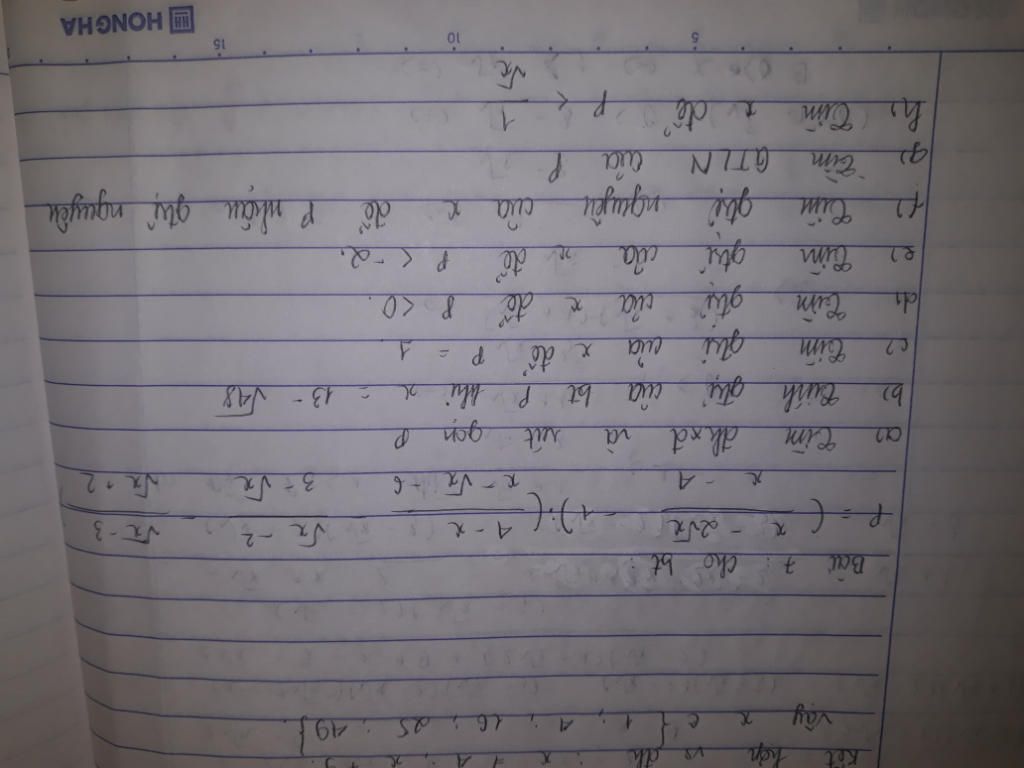 kết hợp vs đk : x ≠ 4 ; x ≠ 9
vậy x ∈ { 1 ; 4 ; 16 ; 25 ; 49 }.
Bài 7 : cho bt :
P = ( \frac{x - 2\sqrt{x}}{x - 4} - 1 ) : ( \frac{4 - x}{x - \sqrt{x} - 6} - \frac{\sqrt{x} - 2}{3 - \sqrt{x}} - \frac{\sqrt{x} - 3}{\sqrt{x} + 2} )
a) Tìm đkxđ và rút gọn P
b) Tính gtrị của bt P khi x = 13 - \sqrt{48}
c) Tìm gtrị của x để P = 1
d) Tìm gtrị của x để P < 0.
e) Tìm gtrị của x để P < -2.
f) Tìm gtrị nguyên của x để P nhận gtrị nguyên
g) Tìm GTLN của P
h) Tìm x để P < \frac{1}{\sqrt{x}}
5 10 15
HH HONG HA